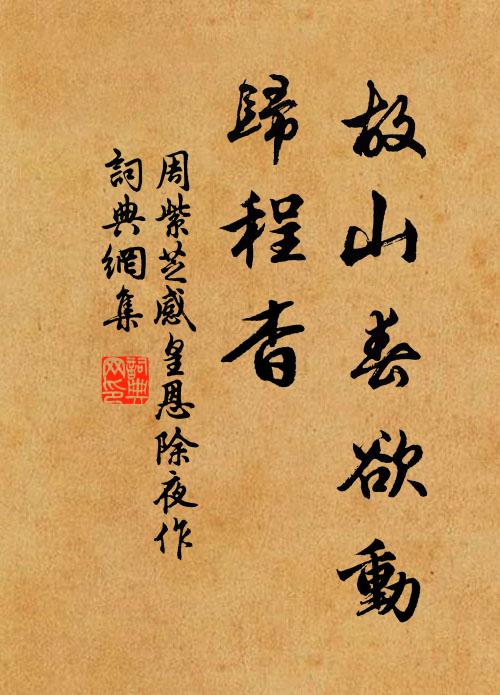 故山春欲動
歸程杳
周紫芝感皇恩除夜作
詞典網集
詞典
网印